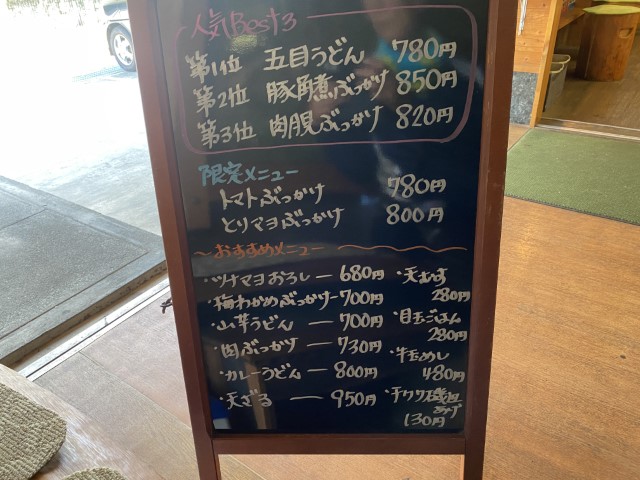 人気Best3
第1位 五目うどん 780円
第2位 豚角煮ぶっかけ 850円
第3位 肉月見ぶっかけ 820円
限定メニュー
トマトぶっかけ 780円
とりマヨぶっかけ 800円
～おすすめメニュー
・ツナマヨおろし 680円
・梅わかめぶっかけ 700円
・山芋うどん 700円
・肉ぶっかけ 730円
・カレーうどん 800円
・天ざる 950円
・天むす
280円
・目玉ごはん
280円
・牛玉めし
480円
・チクワ磯辺
あげ
130円